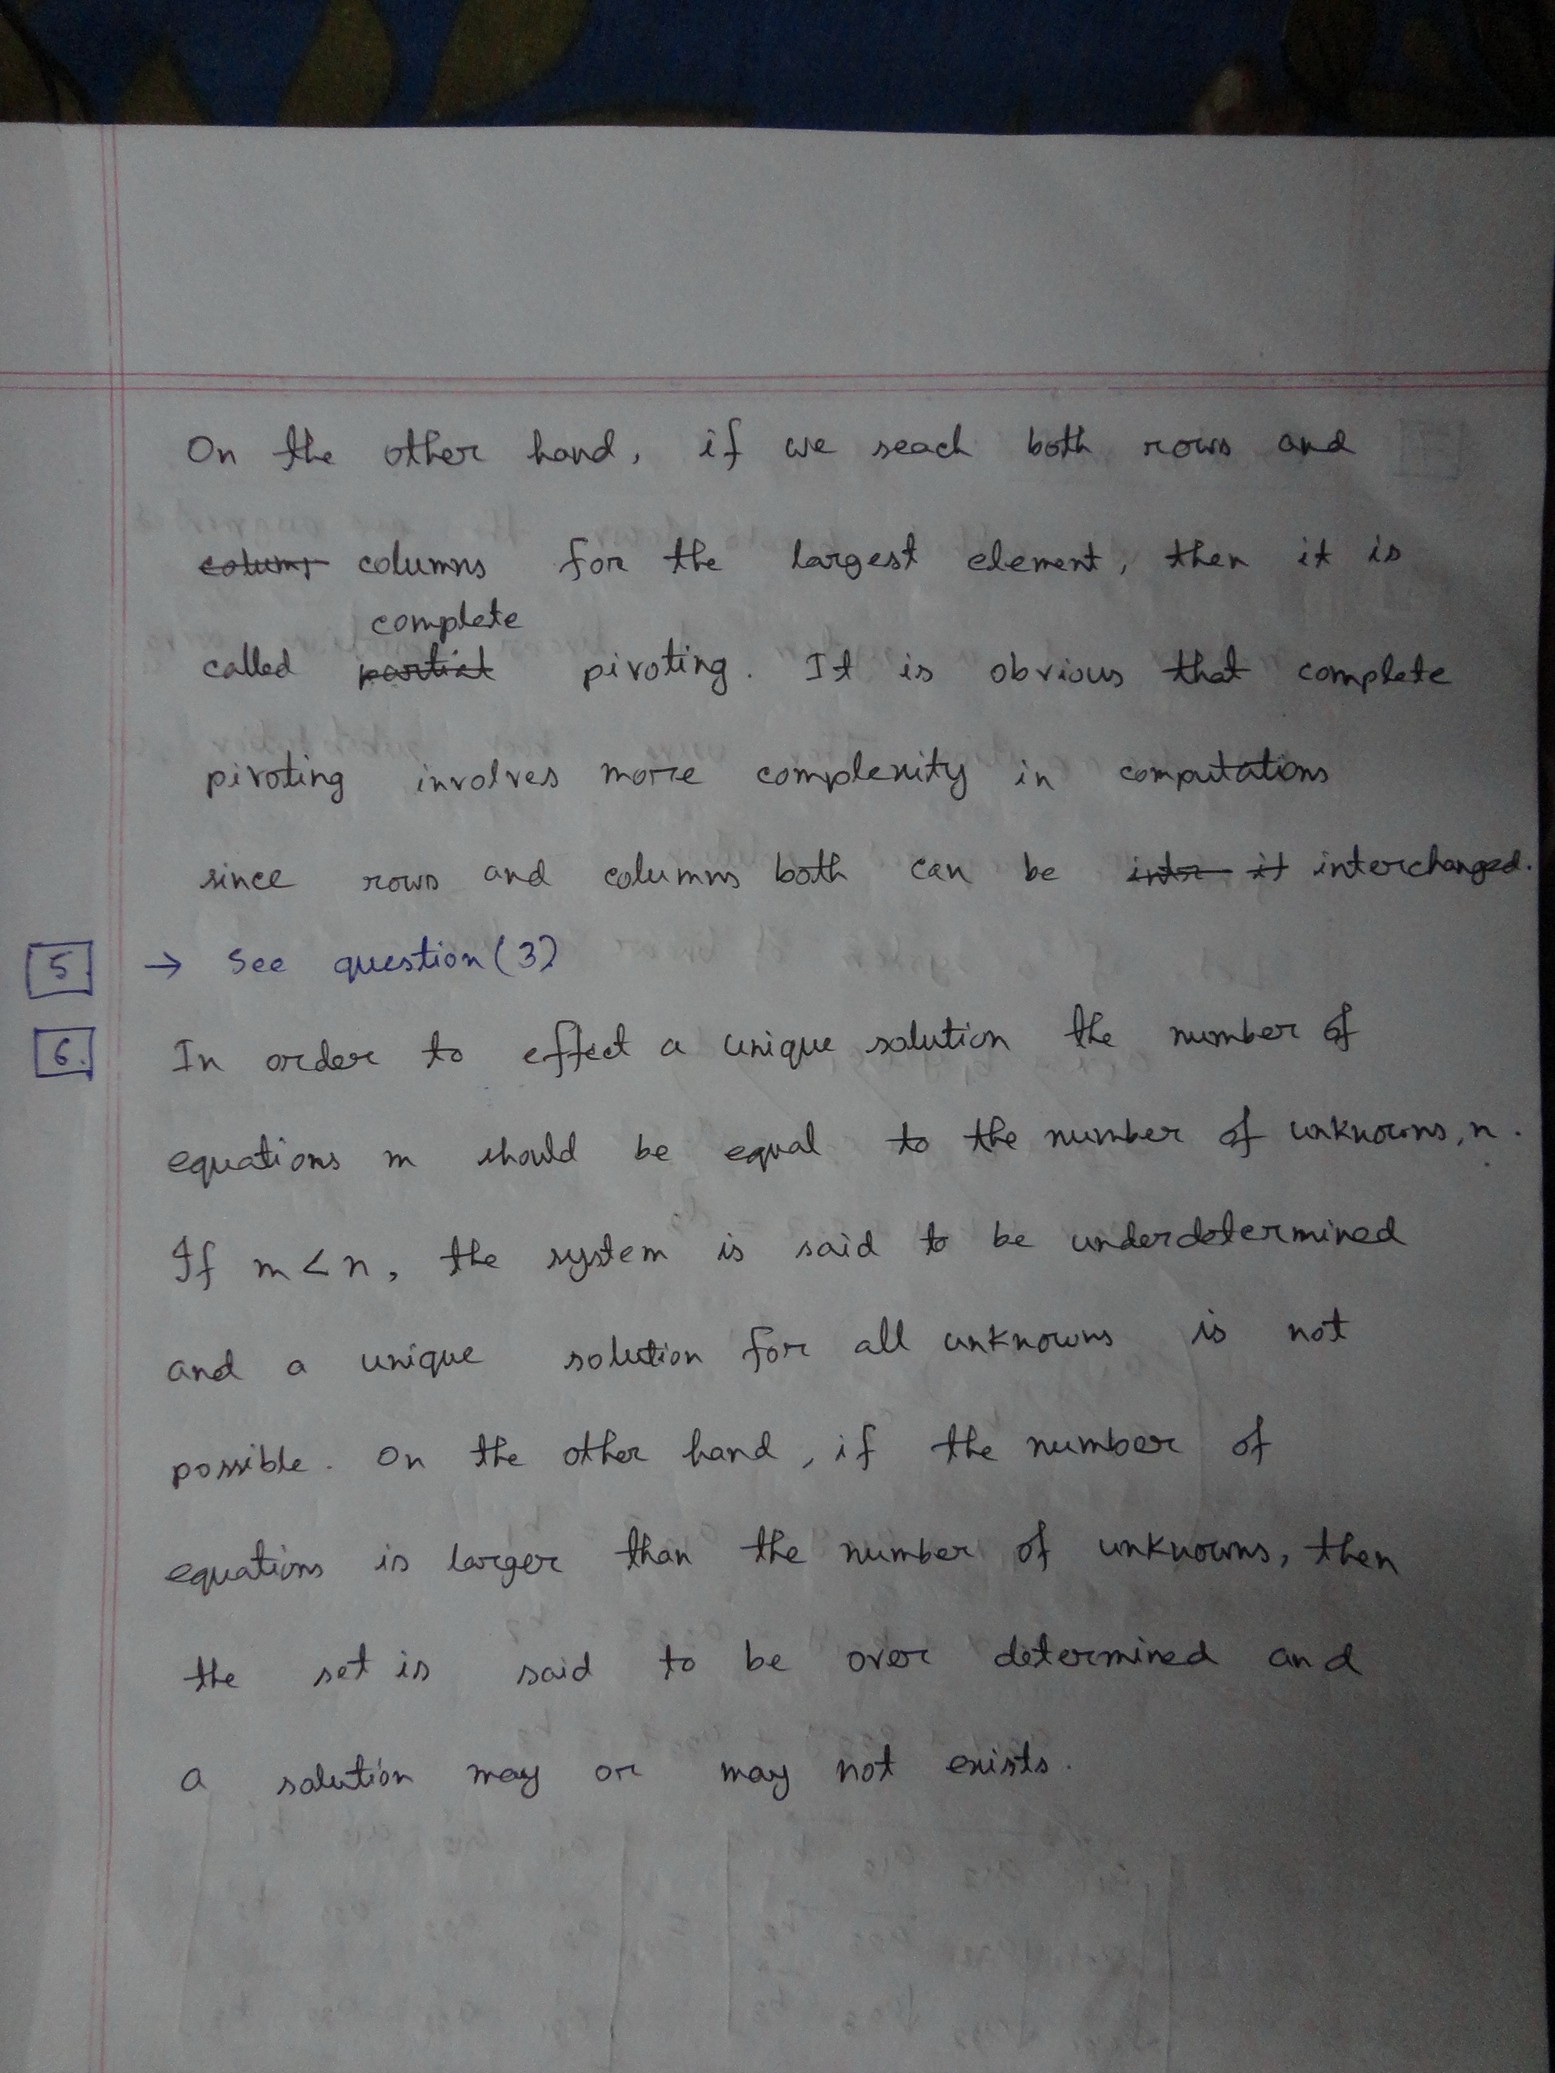 On the other hand, if we seach both rows and
colum, columns for the largest element, then it is
complete
called partial pivoting. It is obvious that complete
pivoting involves more complexity in computations
since rows and columns both can be inter it interchanged.
5. → See question (3)
6. In order to effect a unique solution the number of
equations m should be equal to the number of unknowns, n.
If m < n, the system is said to be underdetermined
and a unique solution for all unknowns is not
possible. On the other hand, if the number of
equations is larger than the number of unknowns, then
the set is said to be over determined and
a solution may or may not exists.